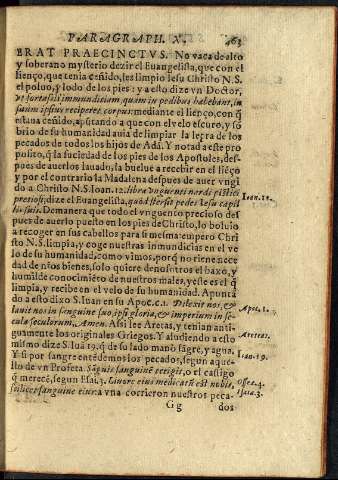 PARAGRAPH. X. 463
ERAT PRAECINCTVS. No vaca de alto
y soberano mysterio dezir el Euangelista, que con el
lienço, que tenia ceñido, les limpio Iesu Christo N.S.
el poluo, y lodo de los pies: y a esto dize vn Doctor,
immunditiam, quàm in pedibus habebant, in
suum ipsius reciperet corpus: mediante el lienço, con q̃
estaua ceñido, apũtando a que con el velo escuro, y so
brio de su humanidad auia de limpiar la leçra de los
pecados de todos los hijos de Adã. Y notad a este pro
posito, q̃ la suciedad de los pies de los Apostoles, des-
pues de auerlos lauado, la buelue a recebir en el liẽço
y por el contrario la Madalena despues de auer vngi
do a Christo N.S. Ioan. 12. libra vnguenti nardi pistici
pretiosi, dize el Euangelista, quòd stersit pedes Iesu capil
lis suis. De manera que todo el vnguento precioso des
pues de auerlo puesto en los pies de Christo, lo boluio
a recoger en sus cabellos para si mesma: empero Chri
sto N.S. limpia, y coge nuestras inmundicias en el ve
lo de su humanidad, como vimos, porq̃ no tiene nece
dad de nr̃os bienes, solo quiere de nosotros el baxo, y
humilde conocimiẽto de nuestros males, y este es el q̃
limpia, y recibe en el velo de su humanidad. Apunta
do a esto dixo S. Iuan en su Apoc. c. 1. Dilexit nos, &
lauit nos in sanguine suo, ipsi gloria, & imperium in se-
cula seculorum, Amen. Assi lee Aretas, y tenian anti-
guamente los originales Griegos. Y aludiendo a esto
mismo dize S. Iuã 19. q̃ de su lado manò sãgre, y agua.
Y si por sangre entẽdemos los pecados, segun aque-
llo de vn Profeta Sãguis sanguinẽ tetigit, o el castigo
q̃ merecẽ, segun Esai. 3. Liuore eius medicati est nobis,
scilicet sanguine eius: a vna corrieron nuestros peca-
Gg dos
Ioan. 12.
Apoc. 1.
Aretas.
Ioan. 19.
Osseæ. 4.